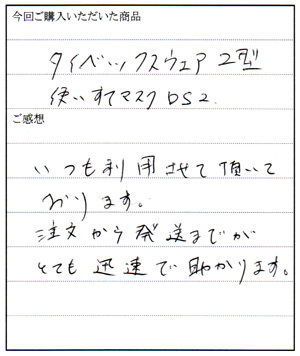 今回ご購入いただいた商品
タイベックスウェア 2型
使いすてマスク DS2.
ご感想
いつも利用させて頂いて
おります。
注文から発送までが
とても迅速で助かります。